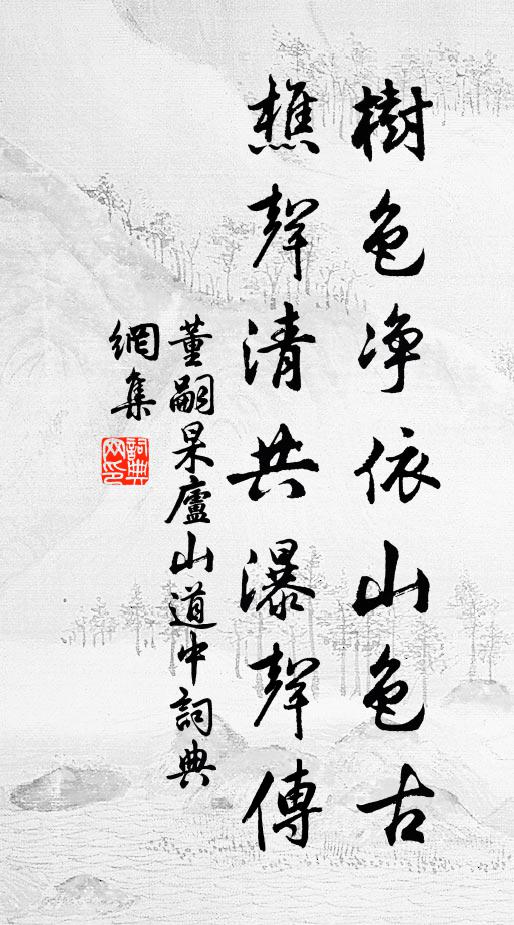 樹色净依山色古
樵聲清共瀑聲傳
董嗣杲廬山道中詞典
網集
詞典網印